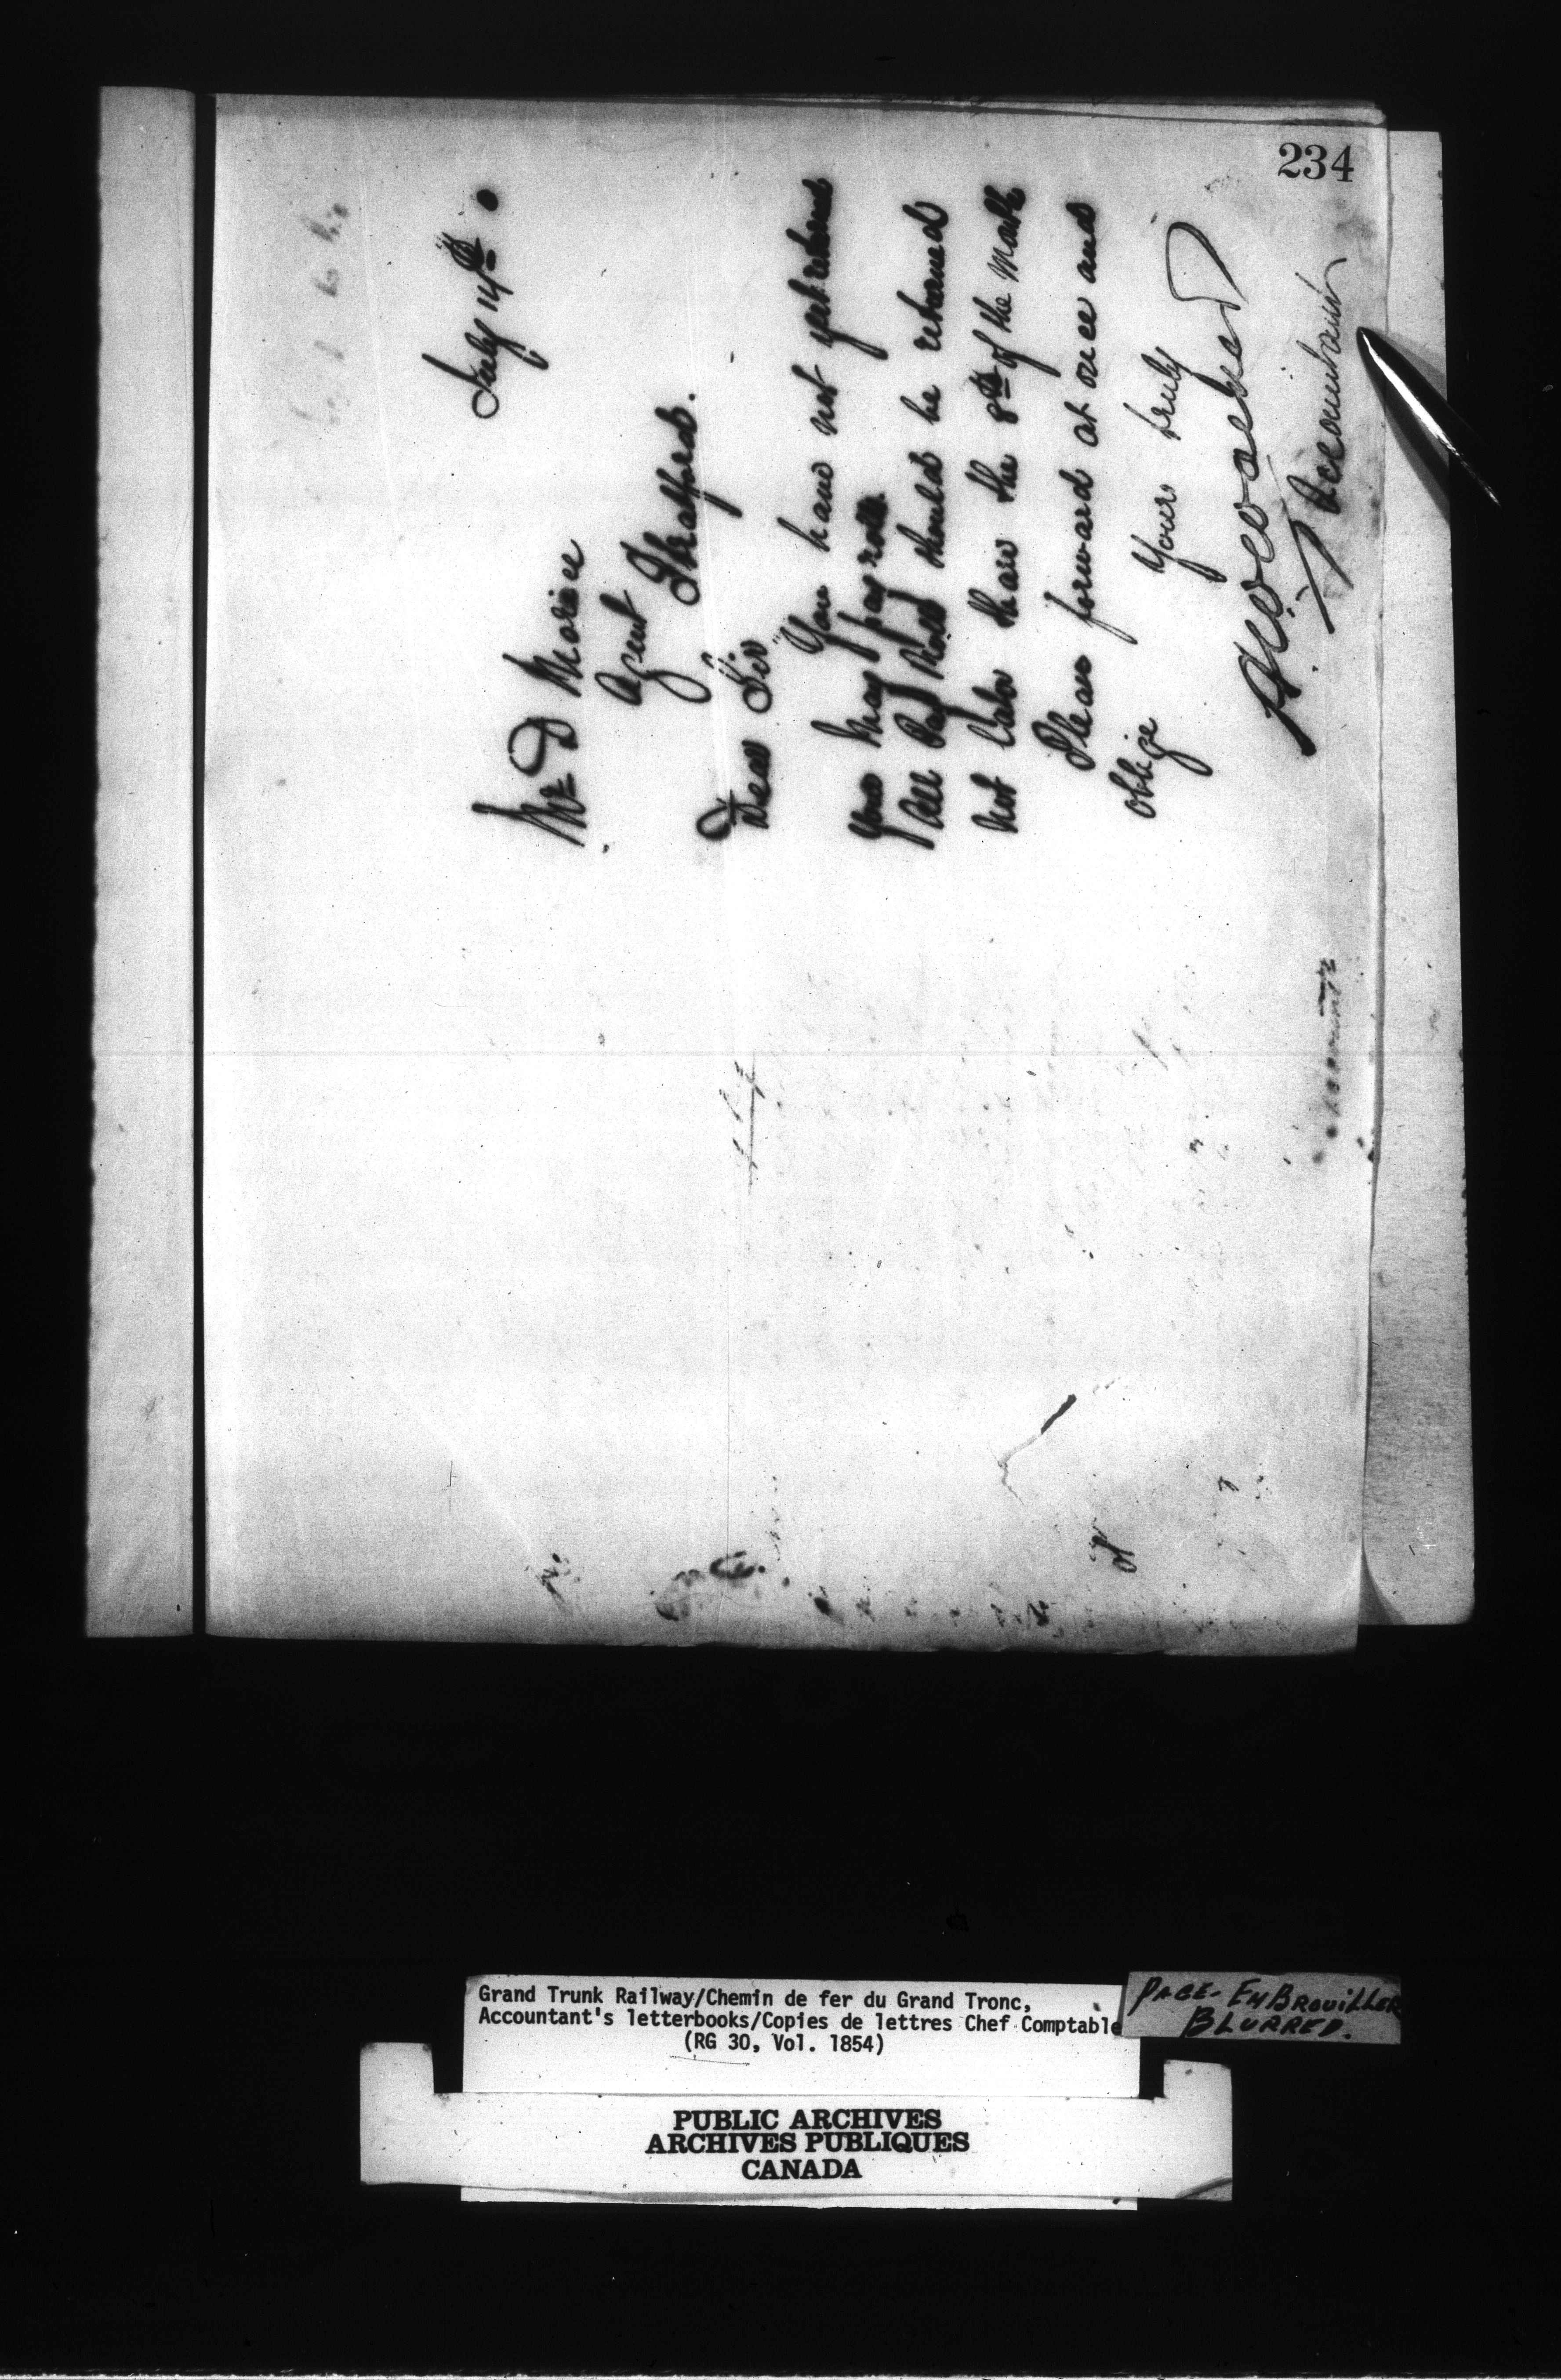 234
July 14th
Mr D Morice
Agent
Stratford.
Dear Sir
You have not yet returned
your May pay rolls.
All Pay Rolls should be returned
not later than the 8th of the Month
Please forward at once and
oblige
Yours truly
Accountant
Grand Trunk Railway/Chemin de fer du Grand Tronc,
Accountant's letterbooks/Copies de lettres Chef Comptable
(RG 30, Vol. 1854)
PAGE - EMBROUILLER
BLURRED.
PUBLIC ARCHIVES
ARCHIVES PUBLIQUES
CANADA